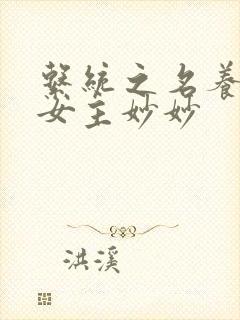 繫統之名養
女主妙妙
洪溪